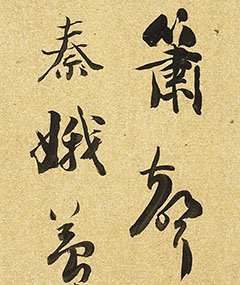 簫聲
秦娥夢